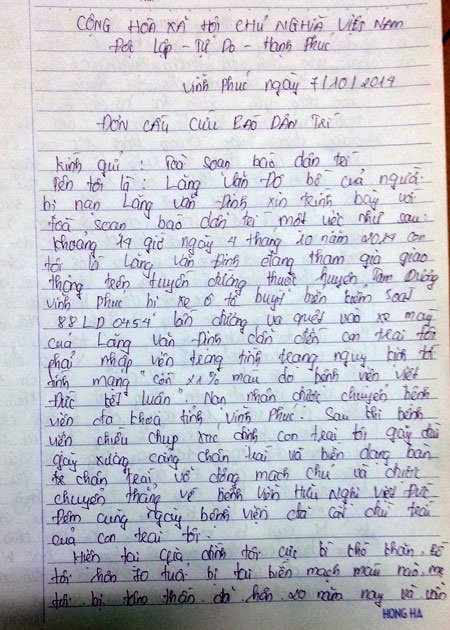 CỘNG HÒA XÃ HỘI CHỦ NGHĨA VIỆT NAM
Độc Lập - Tự Do - Hạnh Phúc
Vĩnh Phúc ngày 7/10/2014
ĐƠN CẦU CỨU BÁO DÂN TRÍ
Kính gửi : Toà Soạn báo dân trí
Tên tôi là : Lăng Văn Đô bố của người
bị nạn Lăng Văn Đình xin trình bày với
toà soạn báo dân trí một việc như sau:
Khoảng 14 giờ ngày 4 tháng 10 năm 2014 con
tôi là Lăng Văn Đình đang tham gia giao
thông trên tuyến đường thuộc huyện Tam Dương
Vĩnh Phúc bị xe ô tô buýt biển kiểm soát
88LD 0454 lấn đường va quyệt vào xe máy
của Lăng Văn Đình dẫn đến con trai tôi
phải nhập viện trong tình trạng nguy kịch tới
tính mạng "còn 21% máu do bệnh viện Việt
Đức kết luận". Nạn nhân được chuyển bệnh
viện đa khoá tỉnh Vĩnh Phúc. Sau khi bệnh
viện chiếu chụp xác định con trai tôi gãy
gãy xương cẳng chân trái và biến dạng bàn
chân trái, vỡ động mạch chủ và được
chuyển thẳng về Bệnh viện Hữu Nghị Việt Đức
Đêm cùng ngày bệnh viện đã cắt chi trái
của con trai tôi.
Hiện tại gia đình tôi cực kì khó khăn. Bố
tôi hơn 70 tuổi bị tai biến mạch máu não, mẹ
tôi bị tâm thần đã hơn 20 năm nay và vẫn
HONG HA